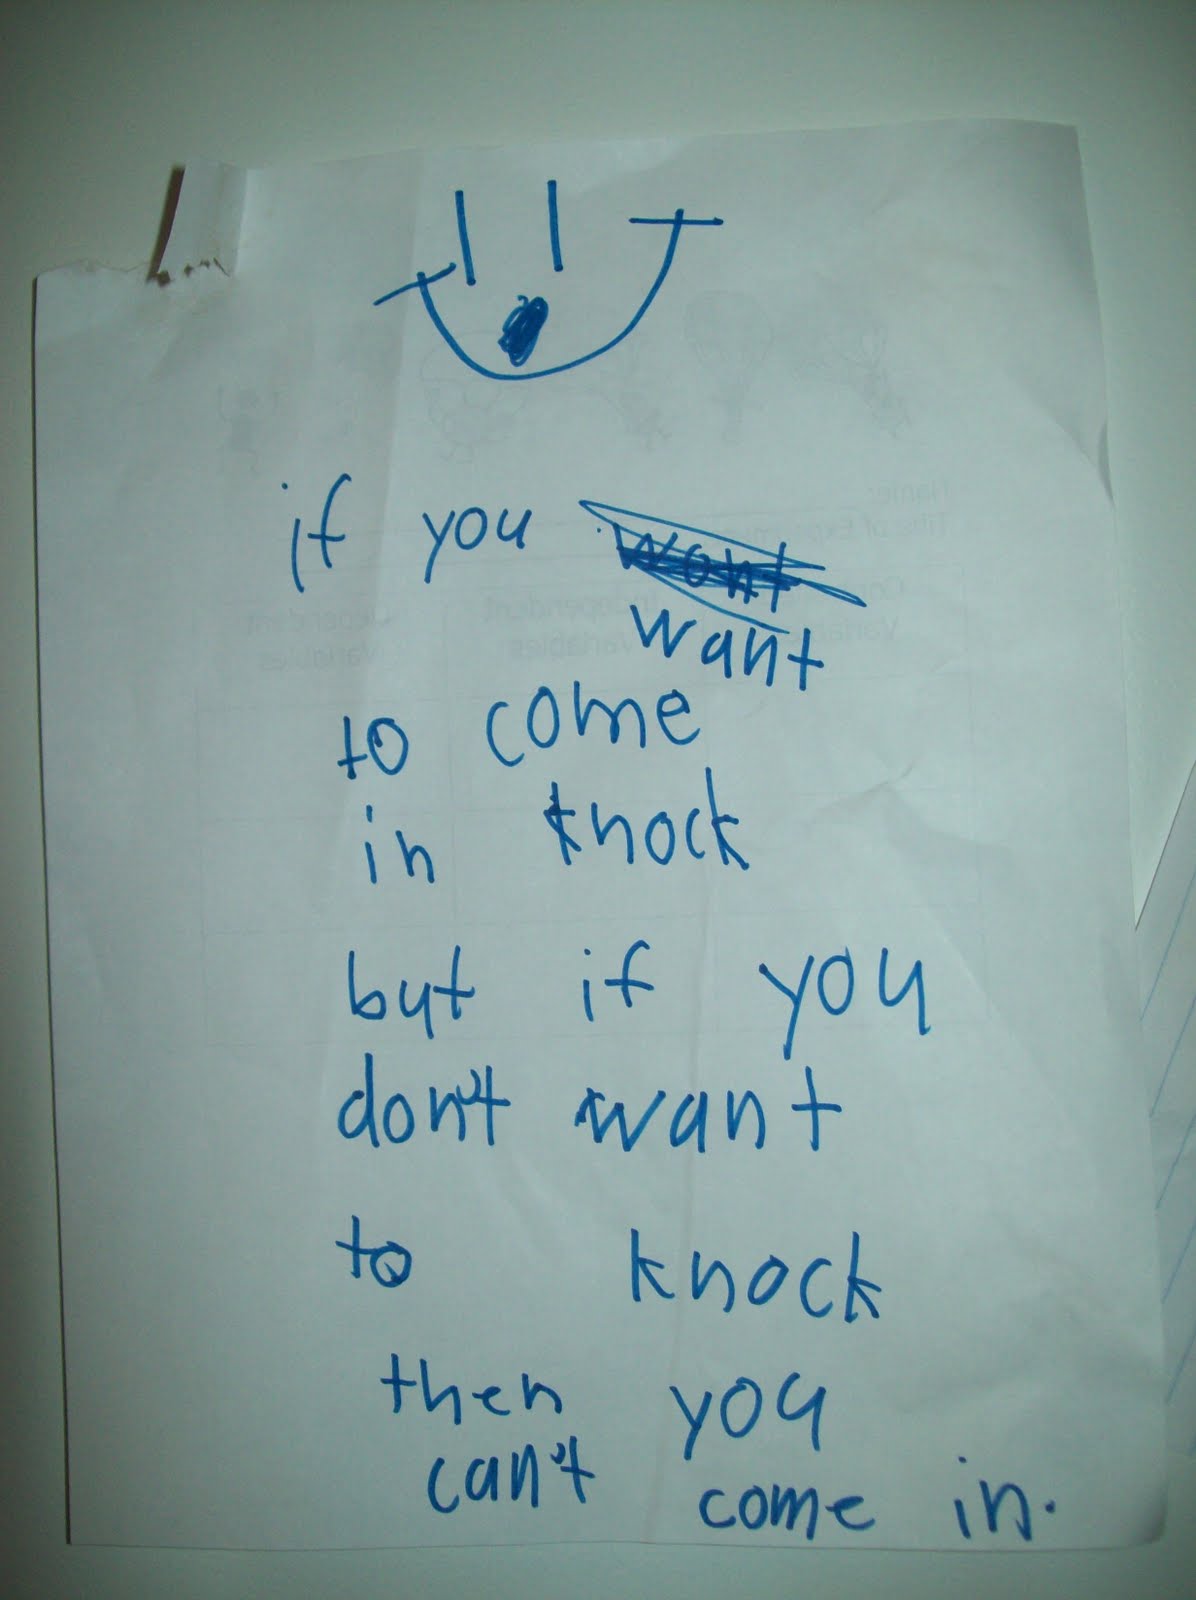 if you wont
want
to come
in knock
but if you
don't want
to knock
then you
can't come in.